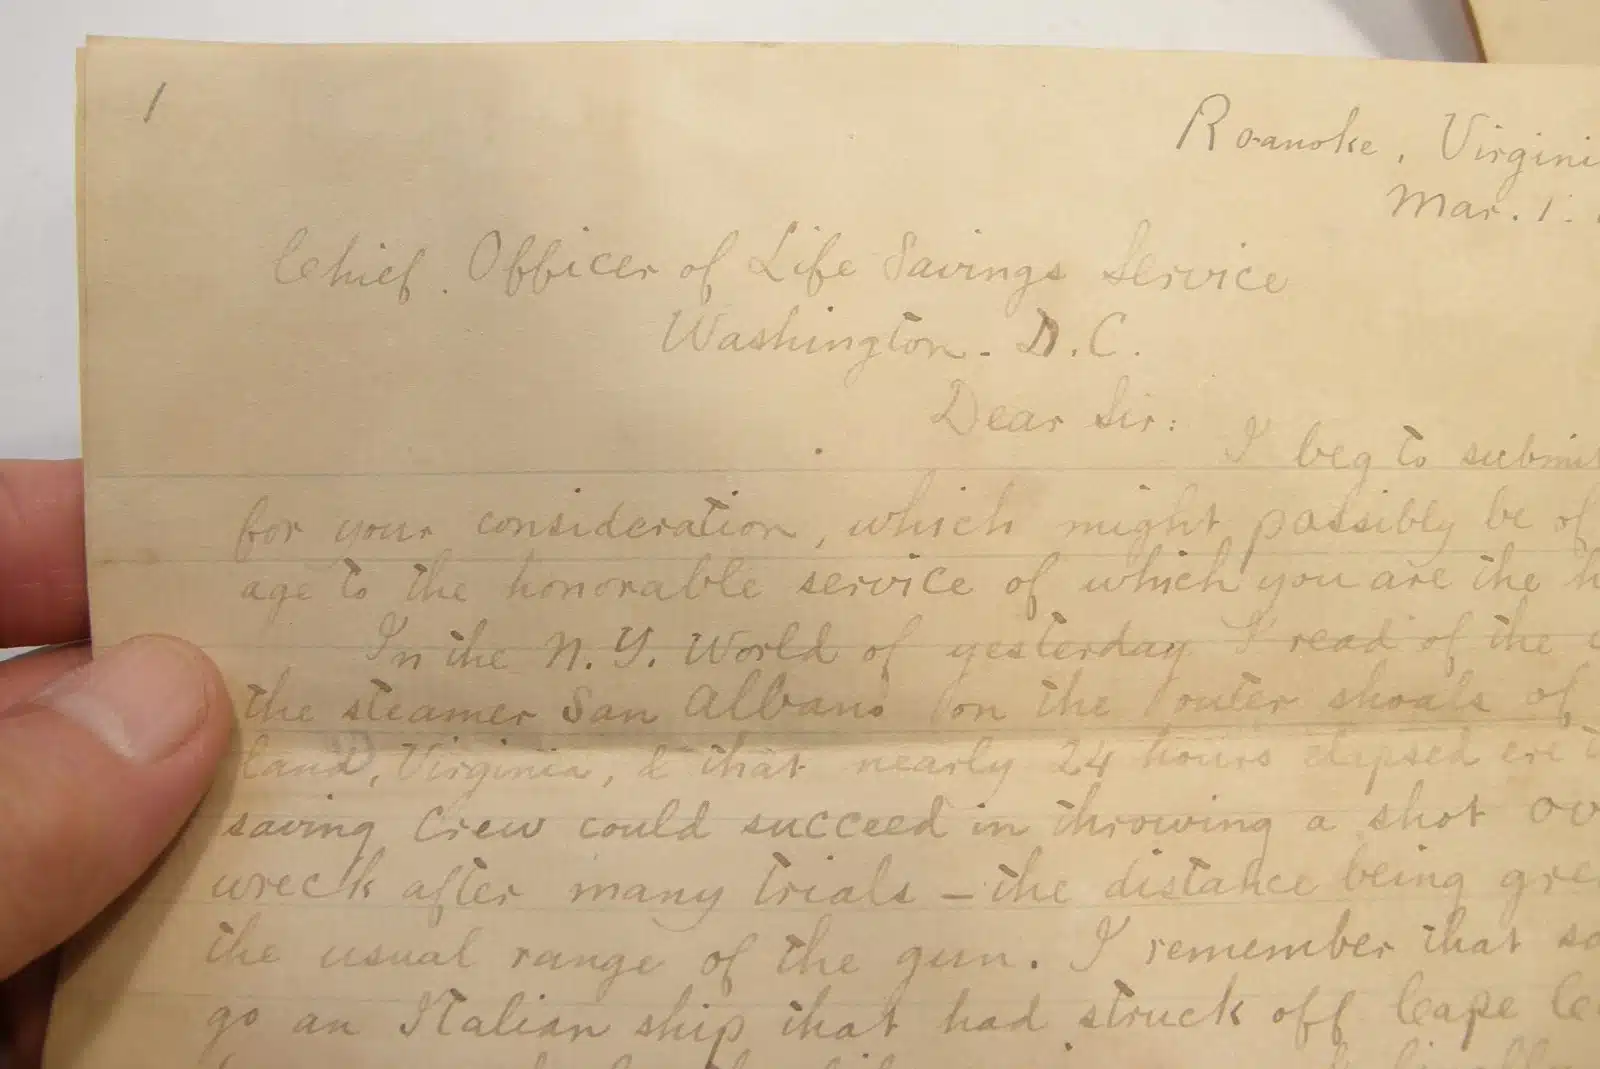 1
Roanoke, Virgini
Mar. 1.
Chief. Officer of Life Savings Service
Washington - D.C.
Dear Sir:
I beg to submit
for your consideration, which might possibly be of
age to the honorable service of which you are the h
In the N.Y. World of yesterday I read of the
the steamer San Albano on the outer shoals of
land, Virginia, & that nearly 24 hours elapsed ere t
saving Crew could succeed in throwing a shot ov
wreck after many trials — the distance being gre
the usual range of the gun. I remember that so
go an Italian ship that had struck off Cape